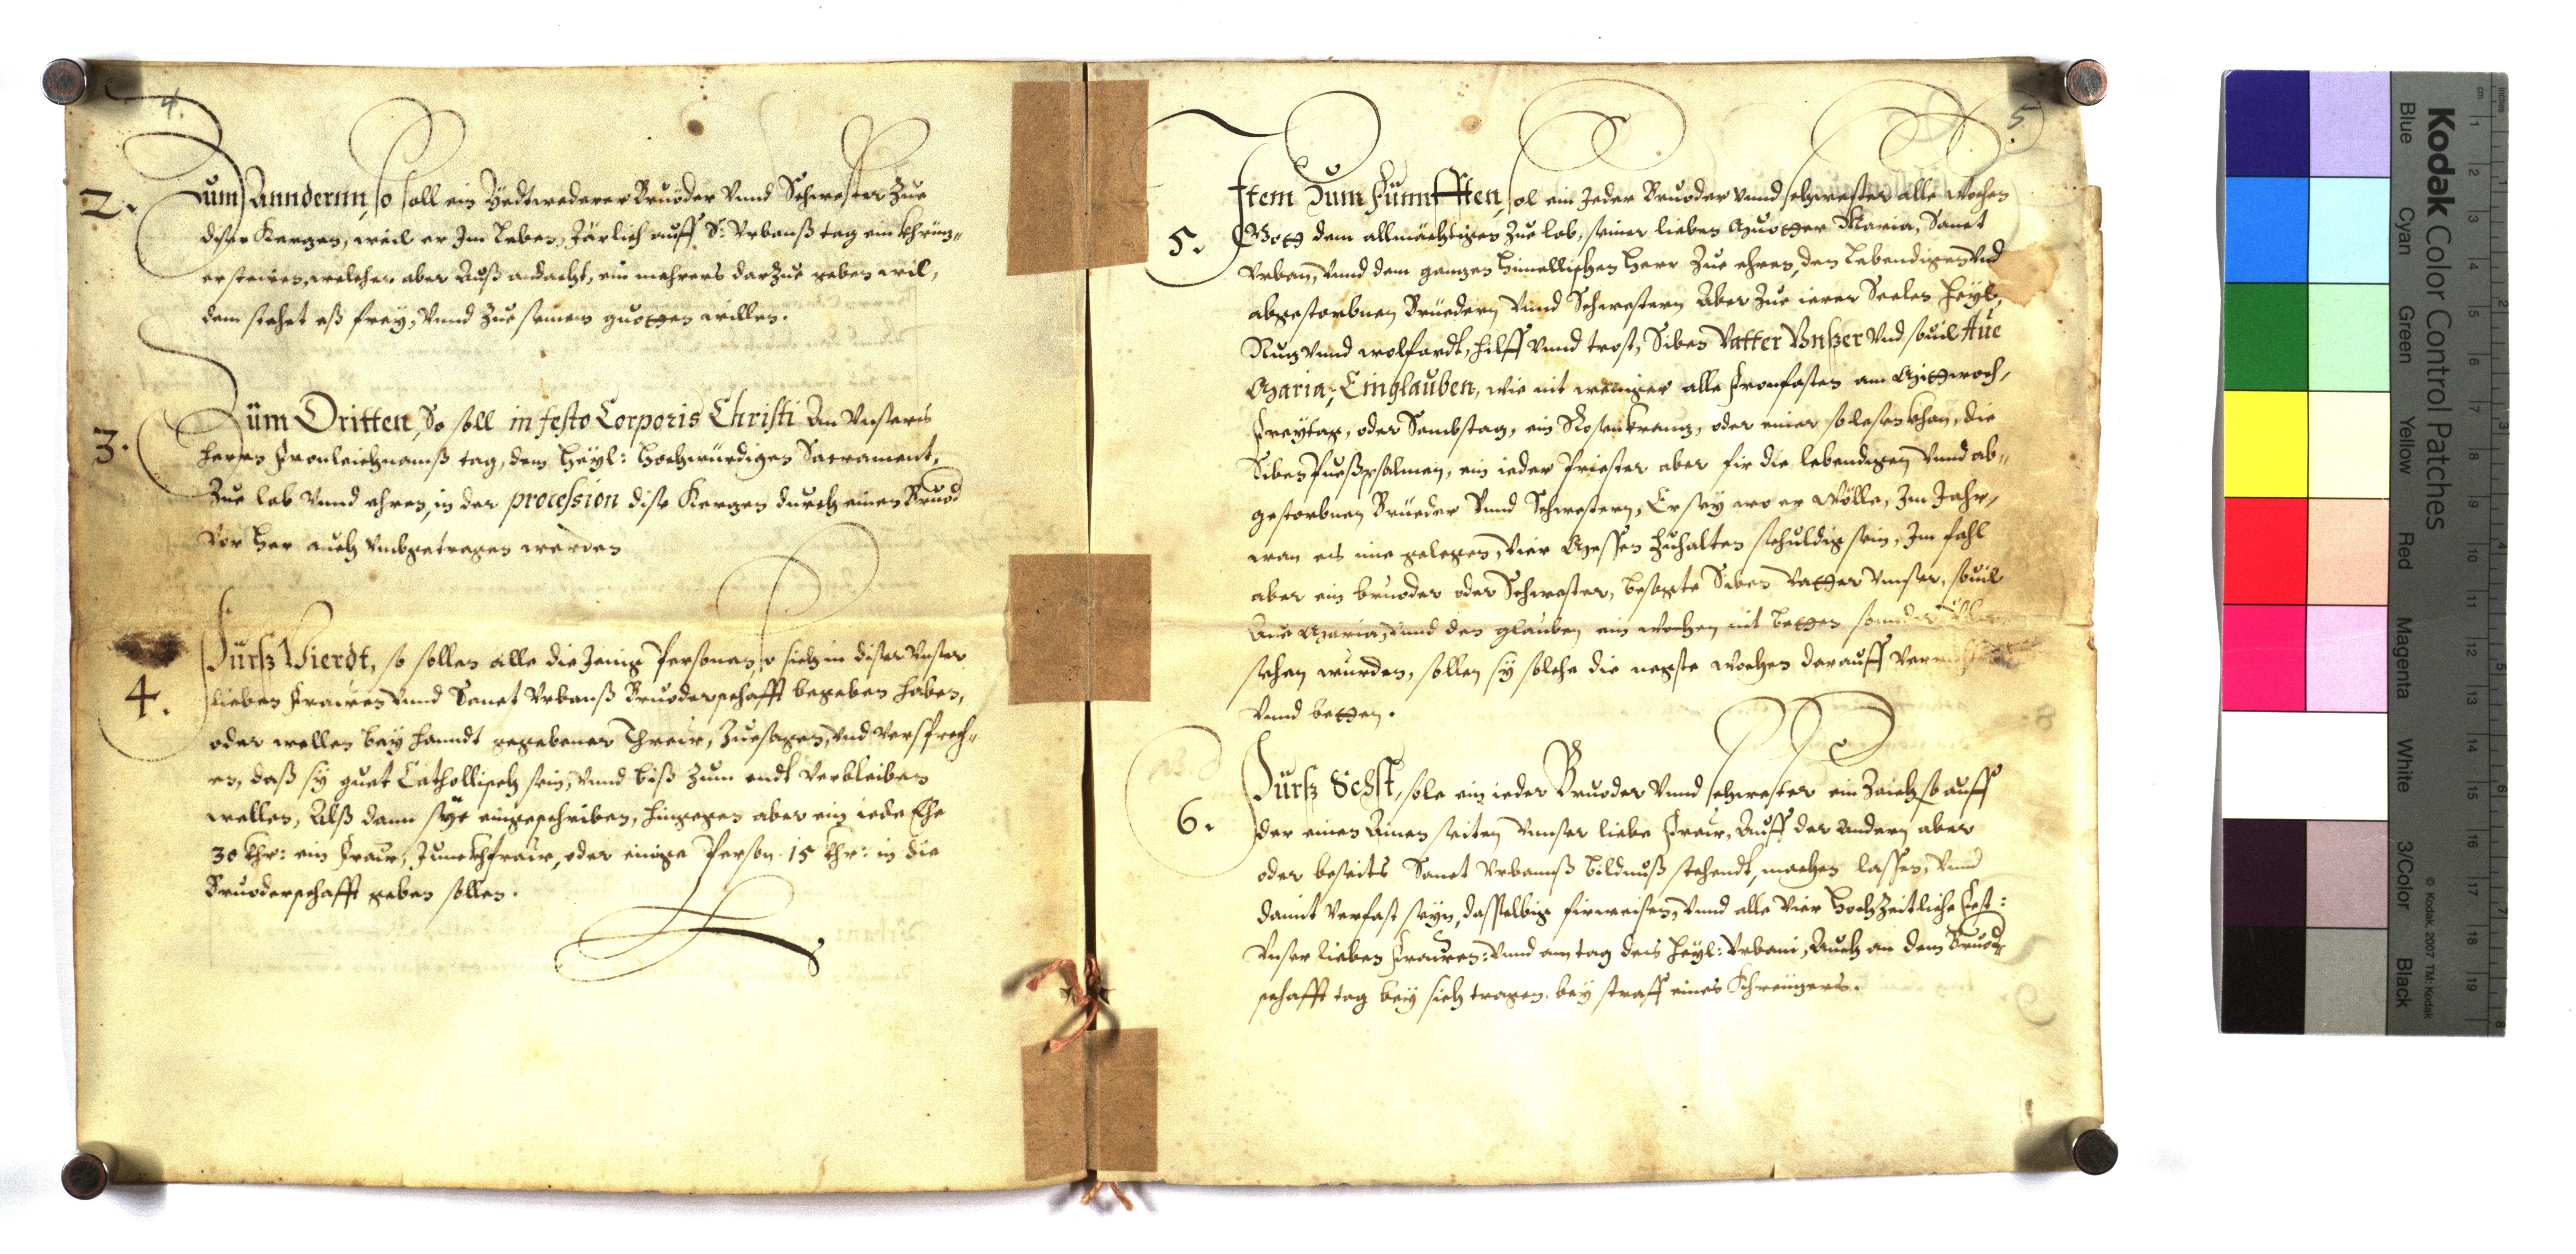 4.
2. Zum Anndernn, so soll ein Yedtwederer Bruoder Vnnd Schwester Zue
diser Kerzen, weil er Im Leben, Järlich auff S: Vrbanß tag ein khreüz„
er steüren, welcher aber Auß andacht, ein mehrers darZue geben wil,
dem stehet eß frey, Vnnd Zue seinem guotten willen.
3. Züm Dritten, So soll in festo Corporis Christi An Vnsers
herren Fronleichnamß tag, dem Heyl: Hochwürdigen Sacrament,
Zue lob Vnnd ehren, in der procession dise Kerzen durch einen Bruod
Vor Her auch Vmbgetragen werden
4. Fürß Vierdt, so sollen alle die Jenig Personen, so sich in diser Vnser
lieben Frawen Vnnd Sanct Vrbanß Bruoderschafft begeben haben,
oder wellen bey handt gegebener Threw, Zuesagen, Vnd Versprech„
en, daß sy guet Catholisch sein, Vnnd biß Zum endt Verbleiben
wellen, Alß dann sye eingeschriben, hingegen aber ein iede Ehe
30 khr: ein Fraw, Junckhfraw, oder einige Person 15 khr: in die
Bruoderschafft geben sollen.
5.
5. Item Zum Fünnfften, sol ein Jeder Bruoder vnnd schwester alle wochen
Gott dem allmächtigen Zue lob, seiner lieben Muotter Maria, Sanct
Vrban, Vnnd dem ganzen himellischen Heer Zue ehren, den Lebendigen Vnd
abgestorbnen Brüedern Vnnd Schwestern Aber Zue irer Seelen Heyl,
Nuz Vnnd wolfardt, hilff Vnnd trost, Siben Vatter Vnßer Vnd souil Aue
Maria, Ein glauben, wie nit weniger alle Fronfasten am Mittwoch,
Freytag, oder Sambstag, ein Rosenkranz, oder einer so lesen khan, die
Siben Pueßpsalmen, ein ieder Priester aber für die lebendigen Vnnd ab„
gestorbnen Brüeder Vnnd Schwestern, Er sey wo er Wölle, Im Jahr,
wan es ime gelegen, Vier Messen Zuhalten schuldig sein, Im fahl
aber ein bruoder oder Schwester, besagte Siben Vatter Vnser, souil
Aue Maria, Vnnd den glauben ein wochen nit betten sonnder Über
sehen wurden, sollen sy solche die negste wochen darauff
Vnnd betten.
6. Fürß Sechst, sole ein ieder Bruoder Vnnd schwester ein Zaich so auff
der einen Ainen seiten Vnnser liebe Fraw, Auff der Andern aber
oder beseits Sanct Vrbanuß bildnuß stehendt, machen lassen, Vnnd
damit Verfast seyn, dasselbig fürweisen, Vnnd alle Vier Hochzeitliche Fest:
Vnser lieben Frawen: Vnnd am tag des Heyl: Vrbani, Auch an dem Bruod„
schafft tag bey sich tragen, bey straff eines Khreuzers.
Kodak Color Control Patches
© Kodak, 2007 TM: Kodak
Blue Cyan Green Yellow Red Magenta White 3/Color Black
inches
cm 1 2 3 4 5 6 7 8 9 10 11 12 13 14 15 16 17 18 19